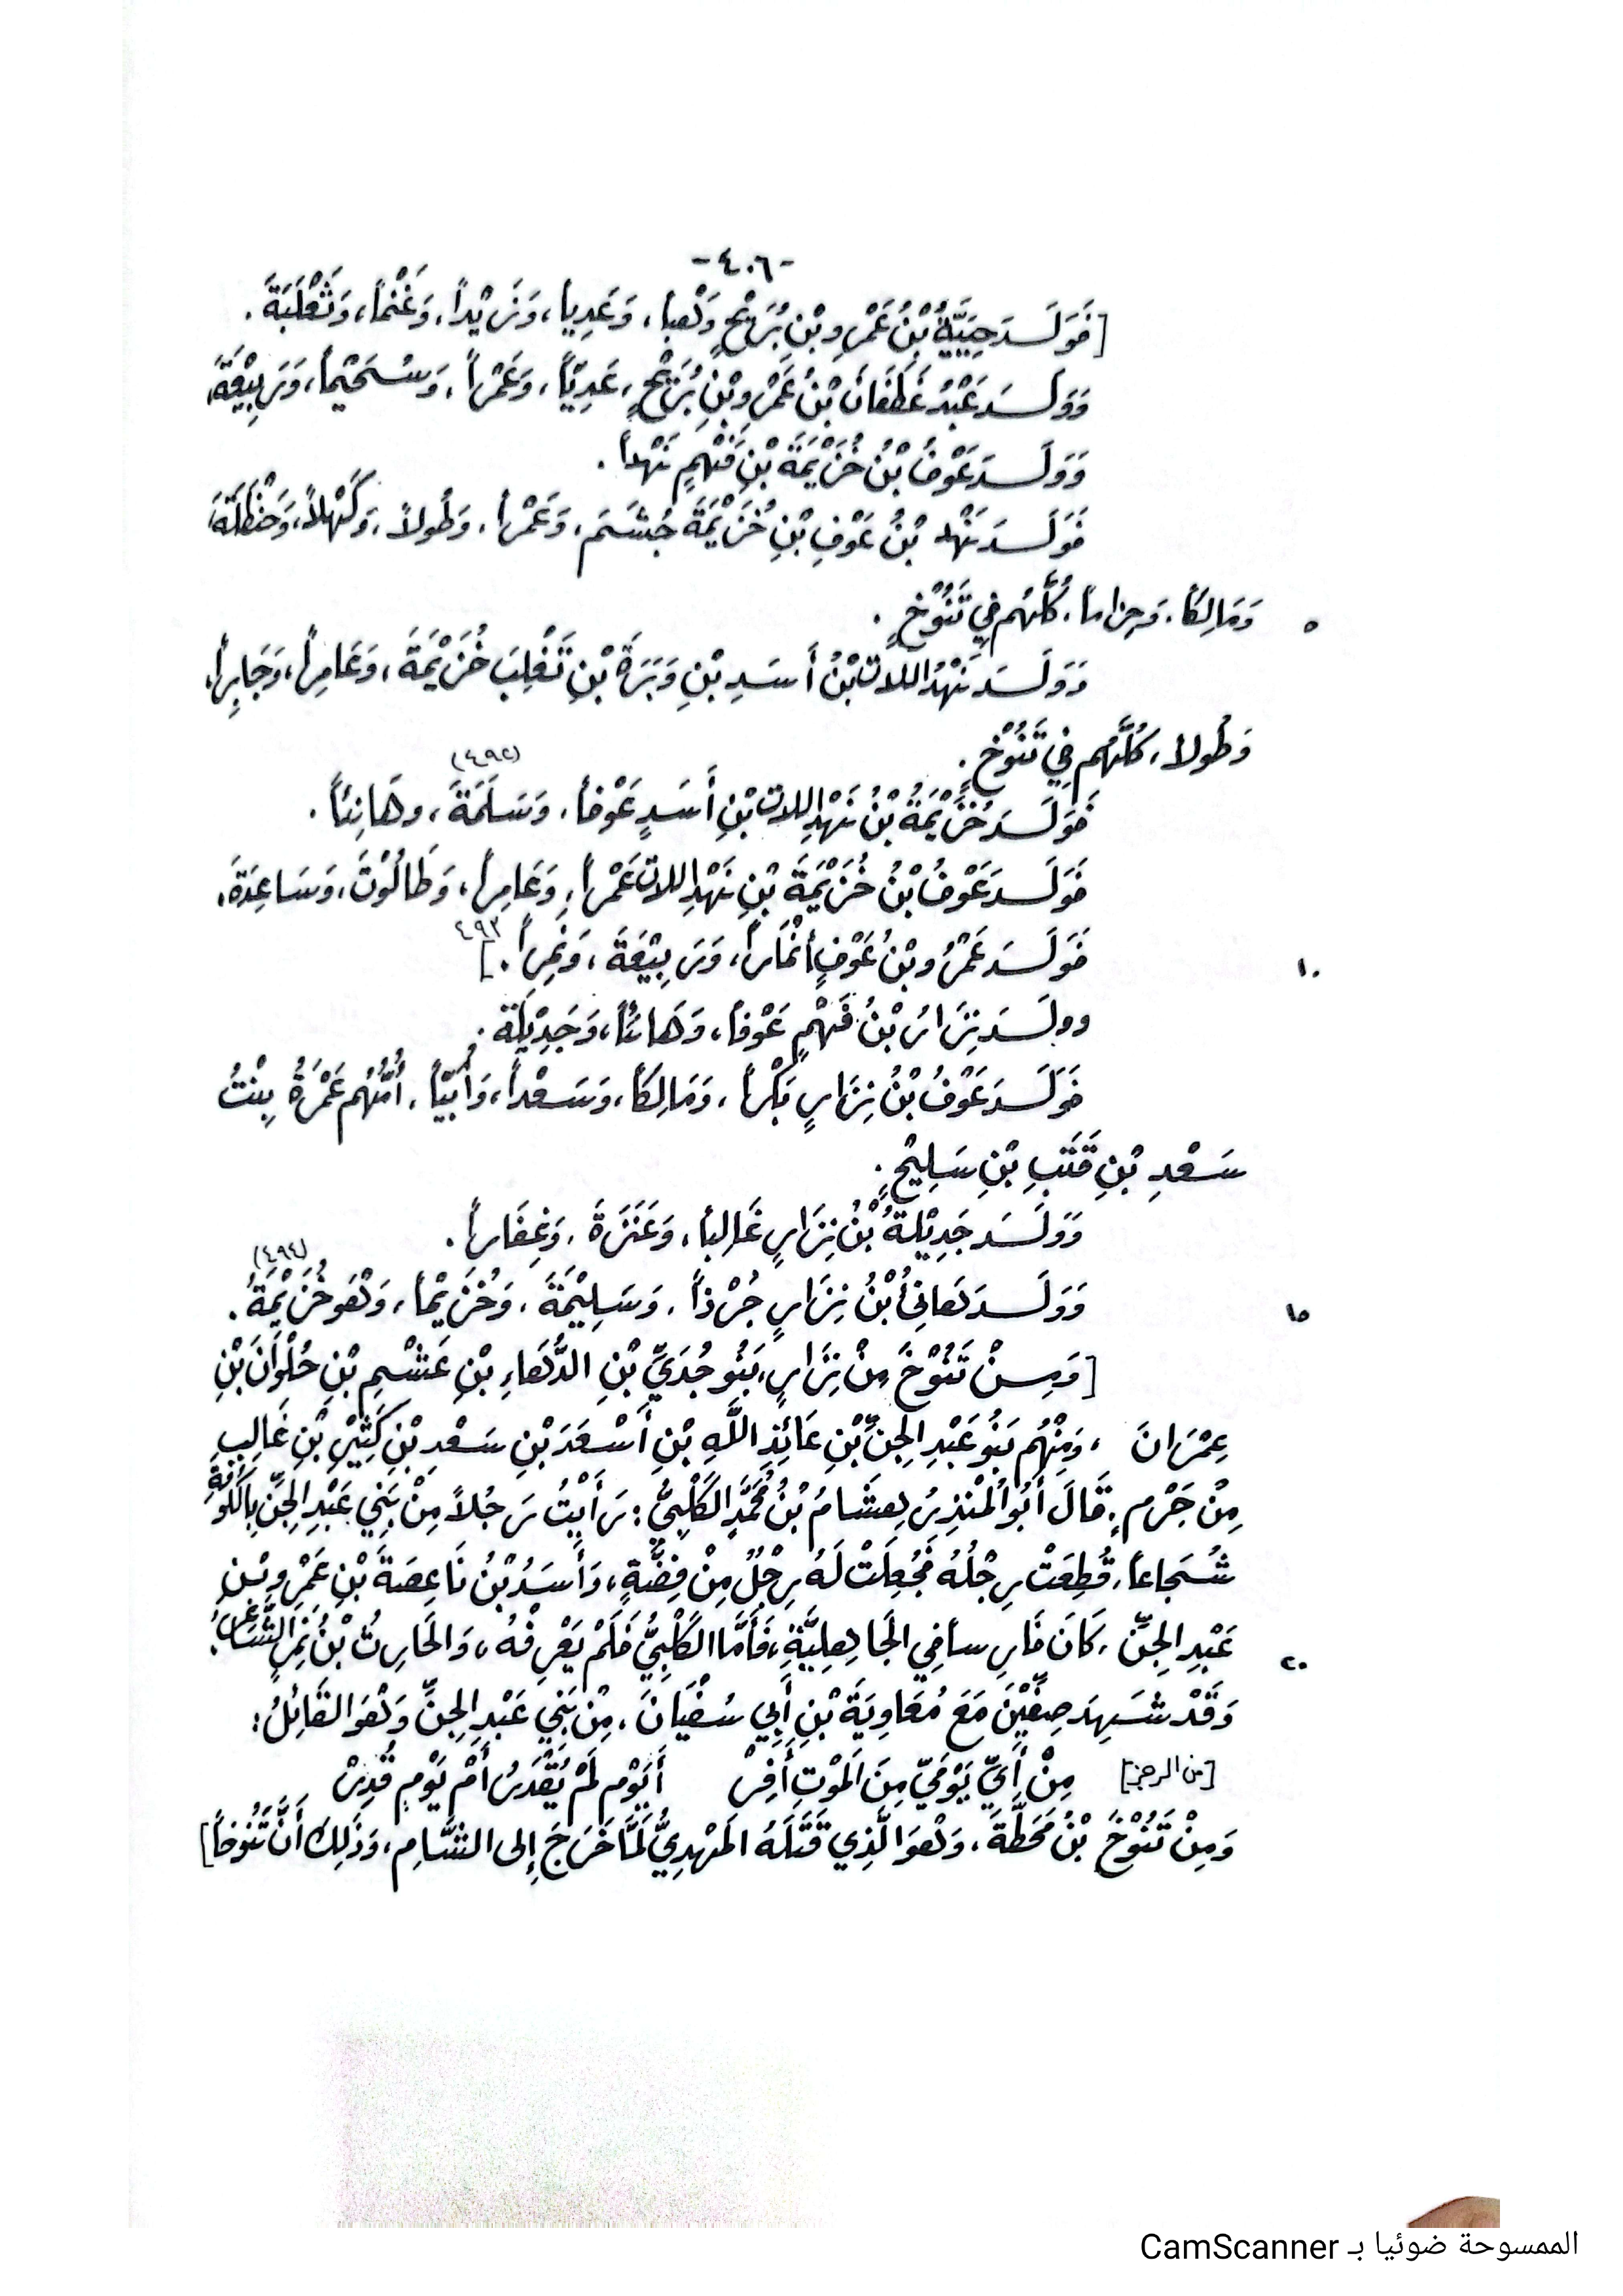 -٤٠٦-
[فَوَلَـدَ حِيَيَّةُ بْنُ عَمْرِو بْنِ بُرَيْحٍ وَكْعباً، وَعَدِياً، وَزَيْداً، وَغَنْماً، وَثَعْلَبَةَ.
وَوَلَـدَ عَبْدُ غَطَفَانَ بْنُ عَمْرِو بْنِ بُرَيْحٍ، عَدِيّاً، وَعَمْراً، وَسُحَيْماً، وَرَبِيْعَةَ،
وَوَلَـدَ عَوْفُ بْنُ خُزَيْمَةَ بْنِ فَهْمٍ نَهْداً.
فَوَلَـدَ نَهْد بْنُ عَوْفِ بْنِ خُزَيْمَةَ جُشَمَ، وَعَمْراً، وَطُولاً، وَكَهْلاً، وَحَنْظَلَةَ،
٥ وَمَالِكاً، وَحِزاماً، كُلُّهُم فِي تَنُوْخٍ.
وَوَلَـدَ نَهْدُ اللات بْنُ أَسَدِ بْنِ وَبَرَةَ بْنِ تَغْلِبَ خُزَيْمَةَ، وَعَامِراً، وَجَابِراً،
وَطُولاً، كُلُّهُم فِي تَنُوْخٍ.
(٤٩٢)
فَوَلَـدَ خُزَيْمَةُ بْنُ نَهْدِ اللات بْنِ أَسَدٍ عَوْفاً، وَسَلَمَةَ، وهَانِئاً.
فَوَلَـدَ عَوْفُ بْنُ خُزَيْمَةَ بْنِ نَهْدِ اللات عَمْراً، وَعَامِراً، وَطَالُوْتَ، وَسَاعِدَةَ،
١٠ فَوَلَـدَ عَمْرُو بْنُ عَوْفٍ أَنْمَاراً، وَرَبِيْعَةَ، وَنَمِراً.] ٤٩٣
وولَـدَ نِزَارُ بْنُ فَهْمٍ عَوْفاً، وَهَانئاً، وَجَدِيْلَةَ.
فَوَلَـدَ عَوْفُ بْنُ نِزَارٍ بَكْراً، وَمَالِكاً، وَسَعْداً، وَأُبَيّاً، أُمُّهُم عَمْرَةُ بِنْتُ
سَعْدِ بْنِ قَتَبِ بْنِ سَلِيْحٍ.
وَوَلَـدَ جَدِيْلَةُ بْنُ نِزَارٍ غَالِباً، وَعَنَزَةَ، وَغِفَاراً.
(٤٩٤)
١٥ وَوَلَـدَ هَانِئُ بْنُ نِزَارٍ جُرْذاً، وَسَلِيْمَةَ، وَخُزَيْماً، وَهْوَ خُزَيْمَةُ.
[وَمِـنْ تَنُوْخَ مِنْ نِزَارٍ، بَنُو جُدَيِّ بْنِ الدَّهَاءِ بْنِ عَشْمِ بْنِ حُلْوَانَ بْنِ
عِمْرَانَ ، وَمِنْهُم بَنُو عَبْدِ الجِنِّ بْنِ عَائِذِ اللَّهِ بْنِ أَسْعَدَ بْنِ سَعْدِ بْنِ كَثِيْرِ بْنِ غَالِبِ
مِنْ جَرْمٍ، قَالَ أَبُو المُنْذِرِ هِشَامُ بْنُ مُحَمَّدٍ الكَلْبِيُّ: رَأَيْتُ رَجُلاً مِنْ بَنِي عَبْدِ الجِنِّ بِالكُوفَةِ
شُجَاعاً، قُطِعَتْ رِجْلُهُ فَجُعِلَتْ لَهُ رِجْلٌ مِنْ فِضَّةٍ، وَأَسَدُ بْنُ نَاعِصَةَ بْنِ عَمْرِو بْنِ
٢٠ عَبْدِ الجِنِّ، كَانَ فَارِساً فِي الجَاهِلِيَّةِ، فَأَمَّا الكَلْبِيُّ فَلَمْ يَعْرِفْهُ، وَالحَارِثُ بْنُ نَمِرٍ الشَّاعِرُ.
وَقَدْ شَهِدَ صِفِّيْنَ مَعَ مُعَاوِيَةَ بْنِ أَبِي سُفْيَانَ، مِنْ بَنِي عَبْدِ الجِنِّ وَهْوَ القَائِلُ:
[من الرجز] مِنْ أَيِّ يَوْمَيَّ مِنَ المَوْتِ أَفِرْ أَيَوْم لَمْ يُقْدَرُ أَمْ يَوْمٍ قُدِرْ
وَمِنْ تَنُوْخَ بْنُ مَحَطَّةَ، وَهْوَ الَّذِي قَتَلَهُ المَهْدِيُّ لَمَّا خَرَجَ إِلى الشَّامِ، وَذَلِكَ أَنَّ تَنُوخاً]
الممسوحة ضوئيا بـ CamScanner